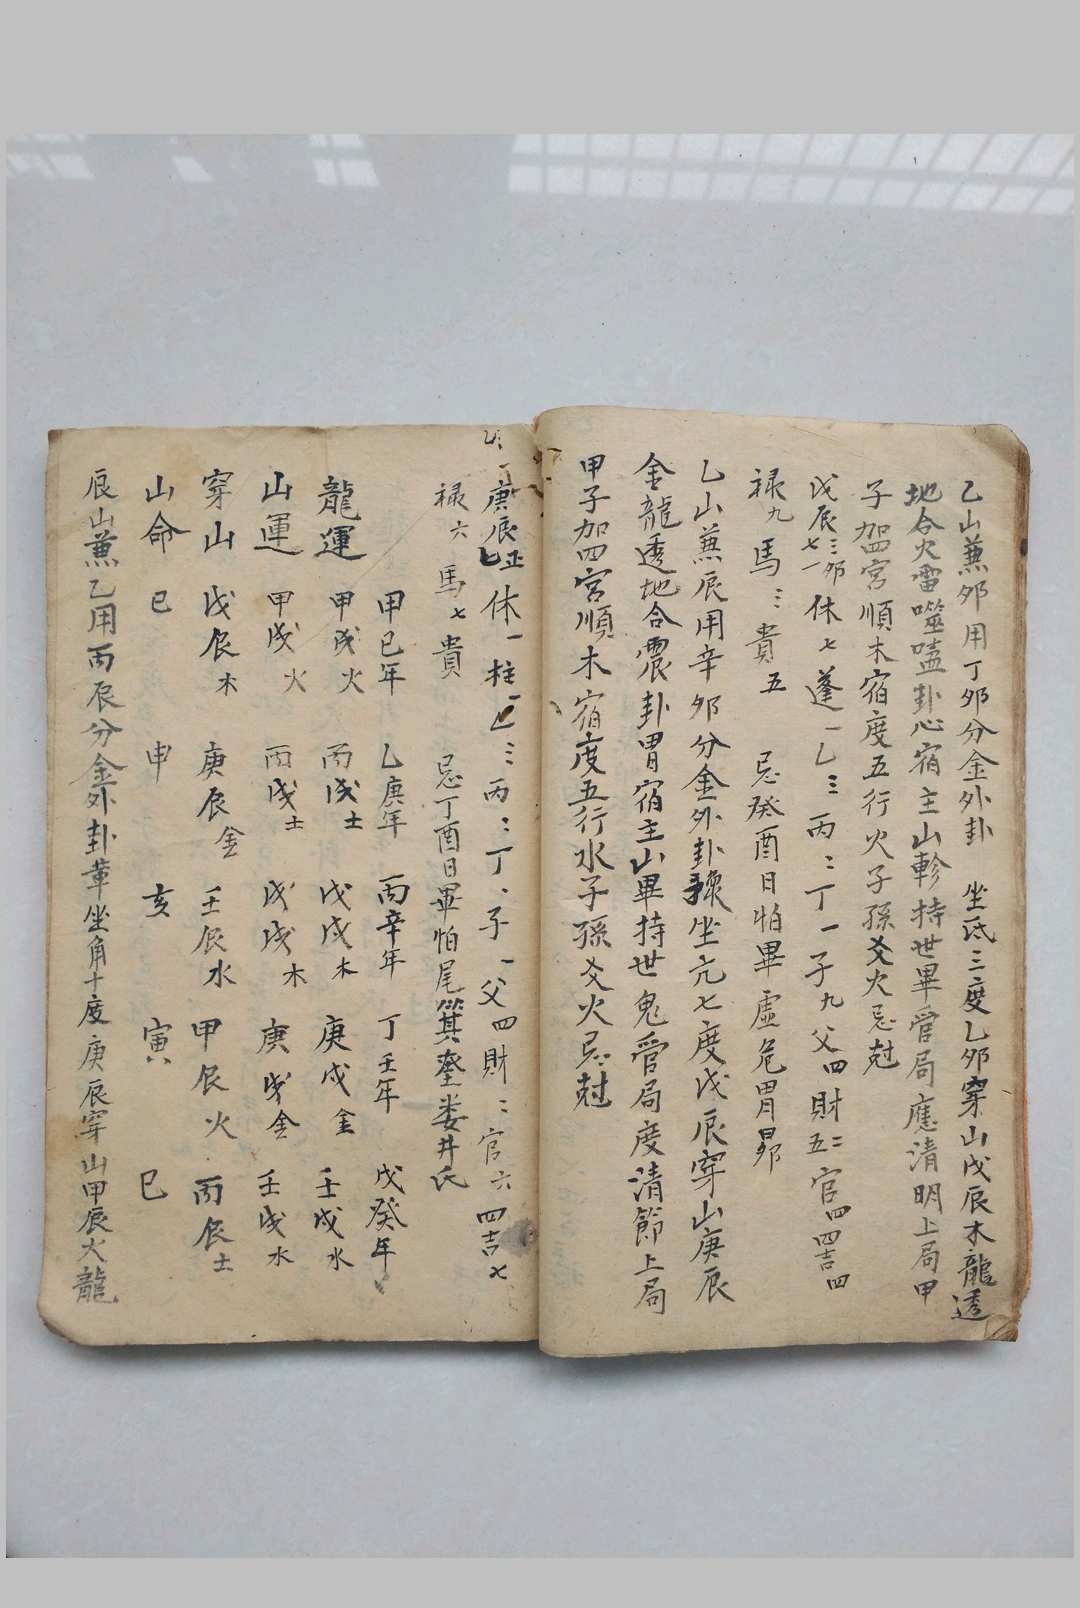 乙山兼夘用丁夘分金外卦 坐氐三度乙夘穿山戊辰木龍透
地合火雷噬嗑卦心宿主山軫持世畢管局應清明上局甲
子加四宮順木宿度五行火子孫爻火忌尅
戊辰三夘七一休七蓬一乙三丙二丁一子九父四財二五官四四吉四
禄九馬三貴五 忌癸酉日怕畢虛危胃昴
乙山兼辰用辛夘分金外卦 坐亢七度戊辰穿山庚辰
金龍透地合震卦胃宿主山畢持世鬼管局度清節上局
甲子加四宮順木宿度五行水子孫爻火忌尅
庚辰正七休一柱一乙三丙二丁、子一父四財二官六四吉七
禄六馬七貴 忌丁酉日畢怕尾箕奎娄井氏
甲巳年 乙庚年 丙辛年 丁壬年 戊癸年
龍運 甲戌火 丙戌土 戊戌木 庚戌金 壬戌水
山運 甲戌火 丙戌土 戊戌木 庚戌金 壬戌水
穿山 戊辰木 庚辰金 壬辰水 甲辰火 丙辰土
山命 巳 申 亥 寅 巳
辰山兼乙用丙辰分金外卦革坐角十度庚辰穿山甲辰火龍